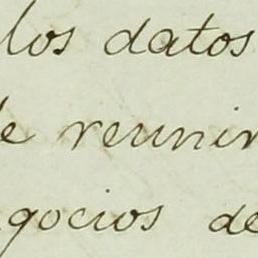 los datos
de reunir
gocios de